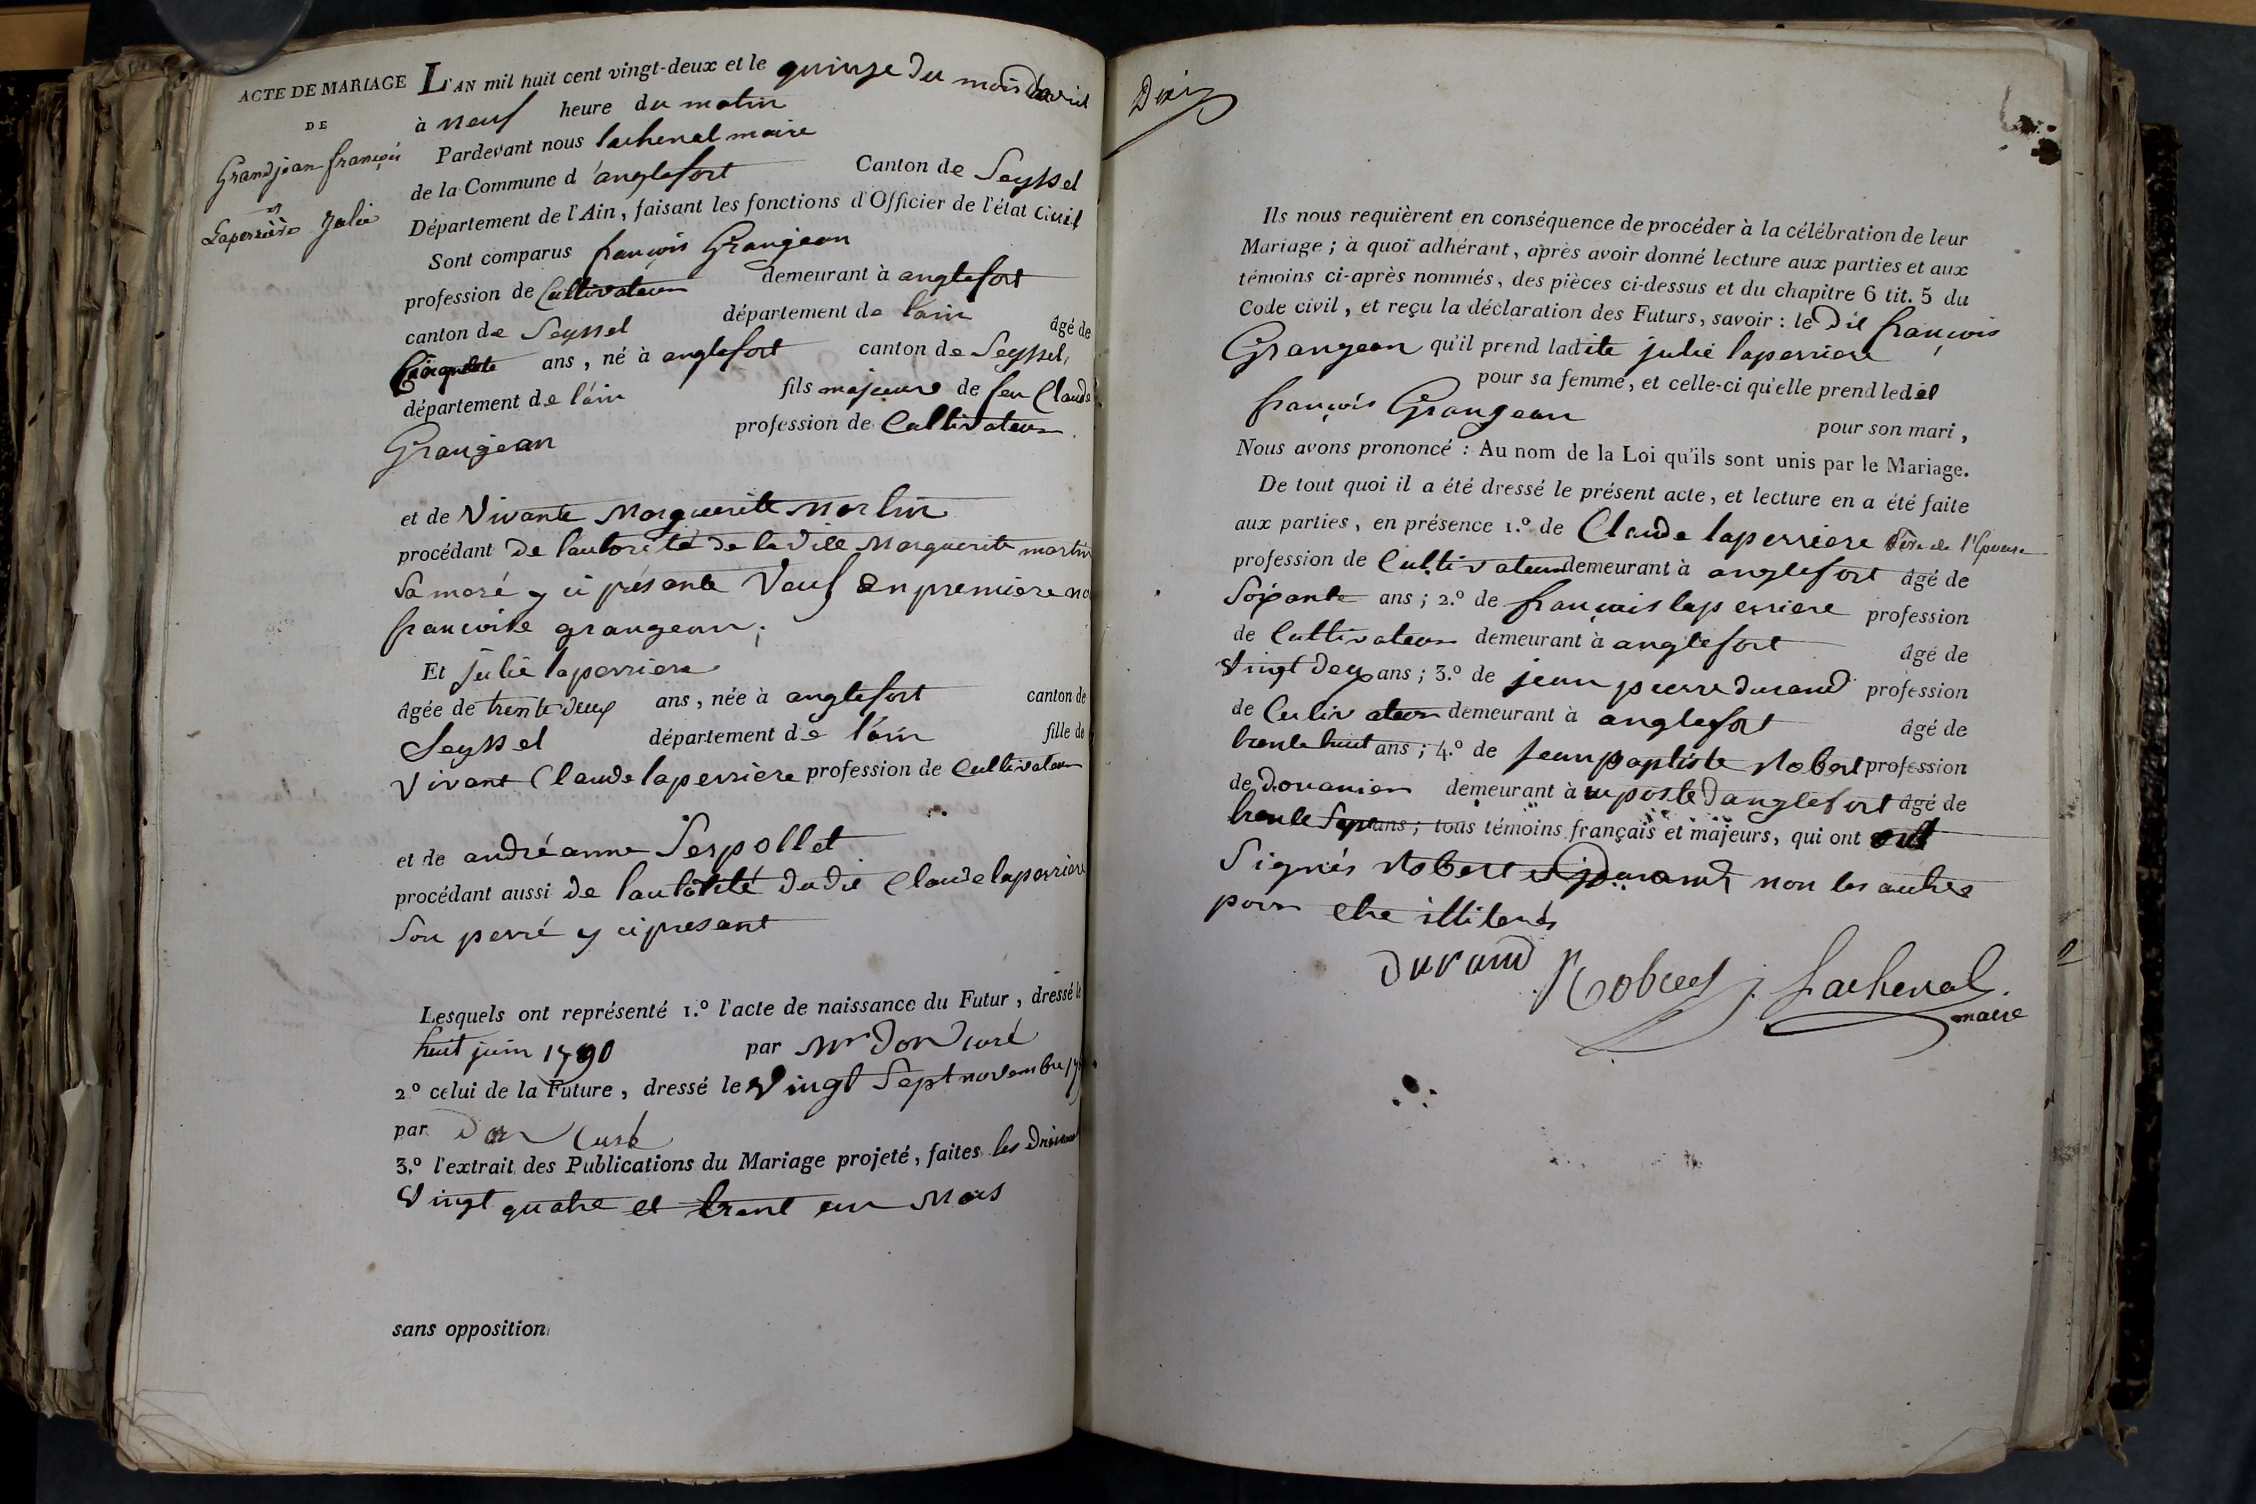 ACTE DE MARIAGE
DE
Grandjean françois
et
Laperrière Julie
L'AN mil huit cent vingt-deux et le quinze du mois d'avril
à neuf heure du matin
Pardevant nous lachenal maire
de la Commune d'anglefort Canton de Seyssel
Département de l'Ain, faisant les fonctions d'Officier de l'état Civil
Sont comparus françois Grangean
profession de Cultivateur demeurant à anglefort
canton de Seyssel département de l'ain âgé de
ans, né à anglefort canton de Seyssel,
département de l'ain fils majeur de feu Claude
Grangean profession de Cultivateur
et de Vivante Marguerite Martin
procédant de l'autorité de la dite Marguerite martin
Sa meré y ci présante Veuf en premiere no
francoise grangean;
Et julie laperriere
âgée de trente deux ans, née à anglefort canton de
Seyssel département de l'ain fille de
Vivant Claude laperriere profession de Cultivateur
et de andréanne Serpollet
procédant aussi de l'autorité dudit Claude laperriere
Son perré y ci présant
Lesquels ont représenté 1.º l'acte de naissance du Futur, dressé le
huit juin 1790 par Mr Don curé
2º celui de la Future, dressé le Vingt Sept novembre
par Don Curé
3.º l'extrait des Publications du Mariage projeté, faites les
Vingt quatre et trent un Mars
sans opposition
Ils nous requièrent en conséquence de procéder à la célébration de leur
Mariage ; à quoi adhérant, après avoir donné lecture aux parties et aux
témoins ci-après nommés, des pièces ci-dessus et du chapitre 6 tit. 5 du
Code civil, et reçu la déclaration des Futurs, savoir : le dit françois
Grangean qu'il prend ladite julie laperriere
pour sa femme, et celle-ci qu'elle prend ledit
françois Grangean pour son mari,
Nous avons prononcé : Au nom de la Loi qu'ils sont unis par le Mariage.
De tout quoi il a été dressé le présent acte, et lecture en a été faite
aux parties, en présence 1.º de Claude laperriere Père de l'Epouse
profession de Cultivateur demeurant à anglefort âgé de
Soixante ans ; 2.º de françois laperriere profession
de Cultivateur demeurant à anglefort âgé de
Vingt deux ans ; 3.º de jean pierre durand profession
de Culivateur demeurant à anglefort âgé de
trente huit ans ; 4.º de jean baptiste Robert profession
de douanier demeurant à u poste d'anglefort âgé de
trente Sept ans ; tous témoins français et majeurs, qui ont
Signés Robert et durand non les autres
pour etre illiterés
durand Robert Lachenal
maire